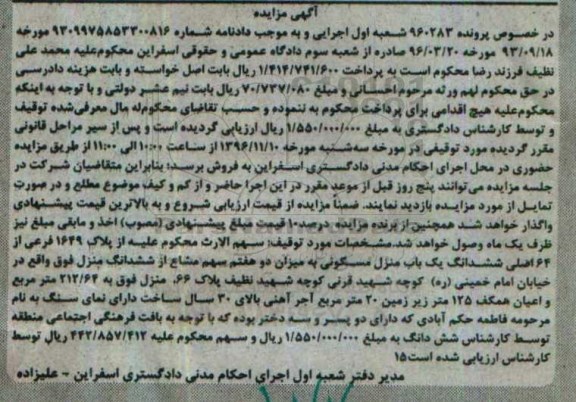 آگهی مزایده
در خصوص پرونده ۹۶۰۲۸۳ شعبه اول اجرایی و به موجب دادنامه شماره ۹۳۰۹۹۷۵۸۵۳۳۰۰۸۱۶ مورخه
۹۳/۰۹/۱۸ مورخه ۹۶/۰۳/۲۰ صادره از شعبه سوم دادگاه عمومی و حقوقی اسفراین محکوم‌علیه محمد علی
نظیف فرزند رضا محکوم است به پرداخت ۱/۴۱۴/۷۴۱/۶۰۰ ریال بابت اصل خواسته و بابت هزینه دادرسی
در حق محکوم لهم ورثه مرحوم احسانی و مبلغ ۷۰/۷۳۷/۰۸۰ ریال بابت نیم عشر دولتی و با توجه به اینکه
محکوم‌علیه هیچ اقدامی برای پرداخت محکوم به ننموده و حسب تقاضای محکوم‌له مال معرفی‌شده توقیف
و توسط کارشناس دادگستری به مبلغ ۱/۵۵۰/۰۰۰/۰۰۰ ریال ارزیابی گردیده است و پس از سیر مراحل قانونی
مقرر گردیده مورد توقیفی در مورخه سه‌شنبه مورخه ۱۳۹۶/۱۱/۱۰ از ساعت ۱۰:۰۰ الی ۱۱:۰۰ از طریق مزایده
حضوری در محل اجرای احکام مدنی دادگستری اسفراین به فروش برسد؛ بنابراین متقاضیان شرکت در
جلسه مزایده می‌توانند پنج روز قبل از موعد مقرر در این اجرا حاضر و از کم و کیف موضوع مطلع و در صورت
تمایل از مورد مزایده بازدید نمایند. ضمناً مزایده از قیمت ارزیابی شروع و به بالاترین قیمت پیشنهادی
واگذار خواهد شد همچنین از برنده مزایده درصد۱۰ قیمت مبلغ پیشنهادی (مصوب) اخذ و مابقی مبلغ نیز
ظرف یک ماه وصول خواهد شد.مشخصات مورد توقیف: سهم الارث محکوم علیه از پلاک ۱۶۴۹ فرعی از
۶۴ اصلی ششدانگ یک باب منزل مسکونی به میزان دو هفتم سهم مشاع از ششدانگ منزل فوق واقع در
خیابان امام خمینی (ره) کوچه شهید قرنی کوچه شهید نظیف پلاک ۶۶، منزل فوق به ۲۱۲/۶۴ متر مربع
و اعیان همکف ۱۲۵ متر زیر زمین ۲۰ متر مربع آجر آهنی بالای ۳۰ سال ساخت دارای نمای سنگ به نام
مرحومه فاطمه حکم آبادی که دارای دو پسر و سه دختر بوده که با توجه به بافت فرهنگی اجتماعی منطقه
توسط کارشناس شش دانگ به مبلغ ۱/۵۵۰/۰۰۰/۰۰۰ ریال و سهم محکوم علیه ۴۴۲/۸۵۷/۴۱۲ ریال توسط
کارشناس ارزیابی شده است۱۵
مدیر دفتر شعبه اول اجرای احکام مدنی دادگستری اسفراین - علیزاده